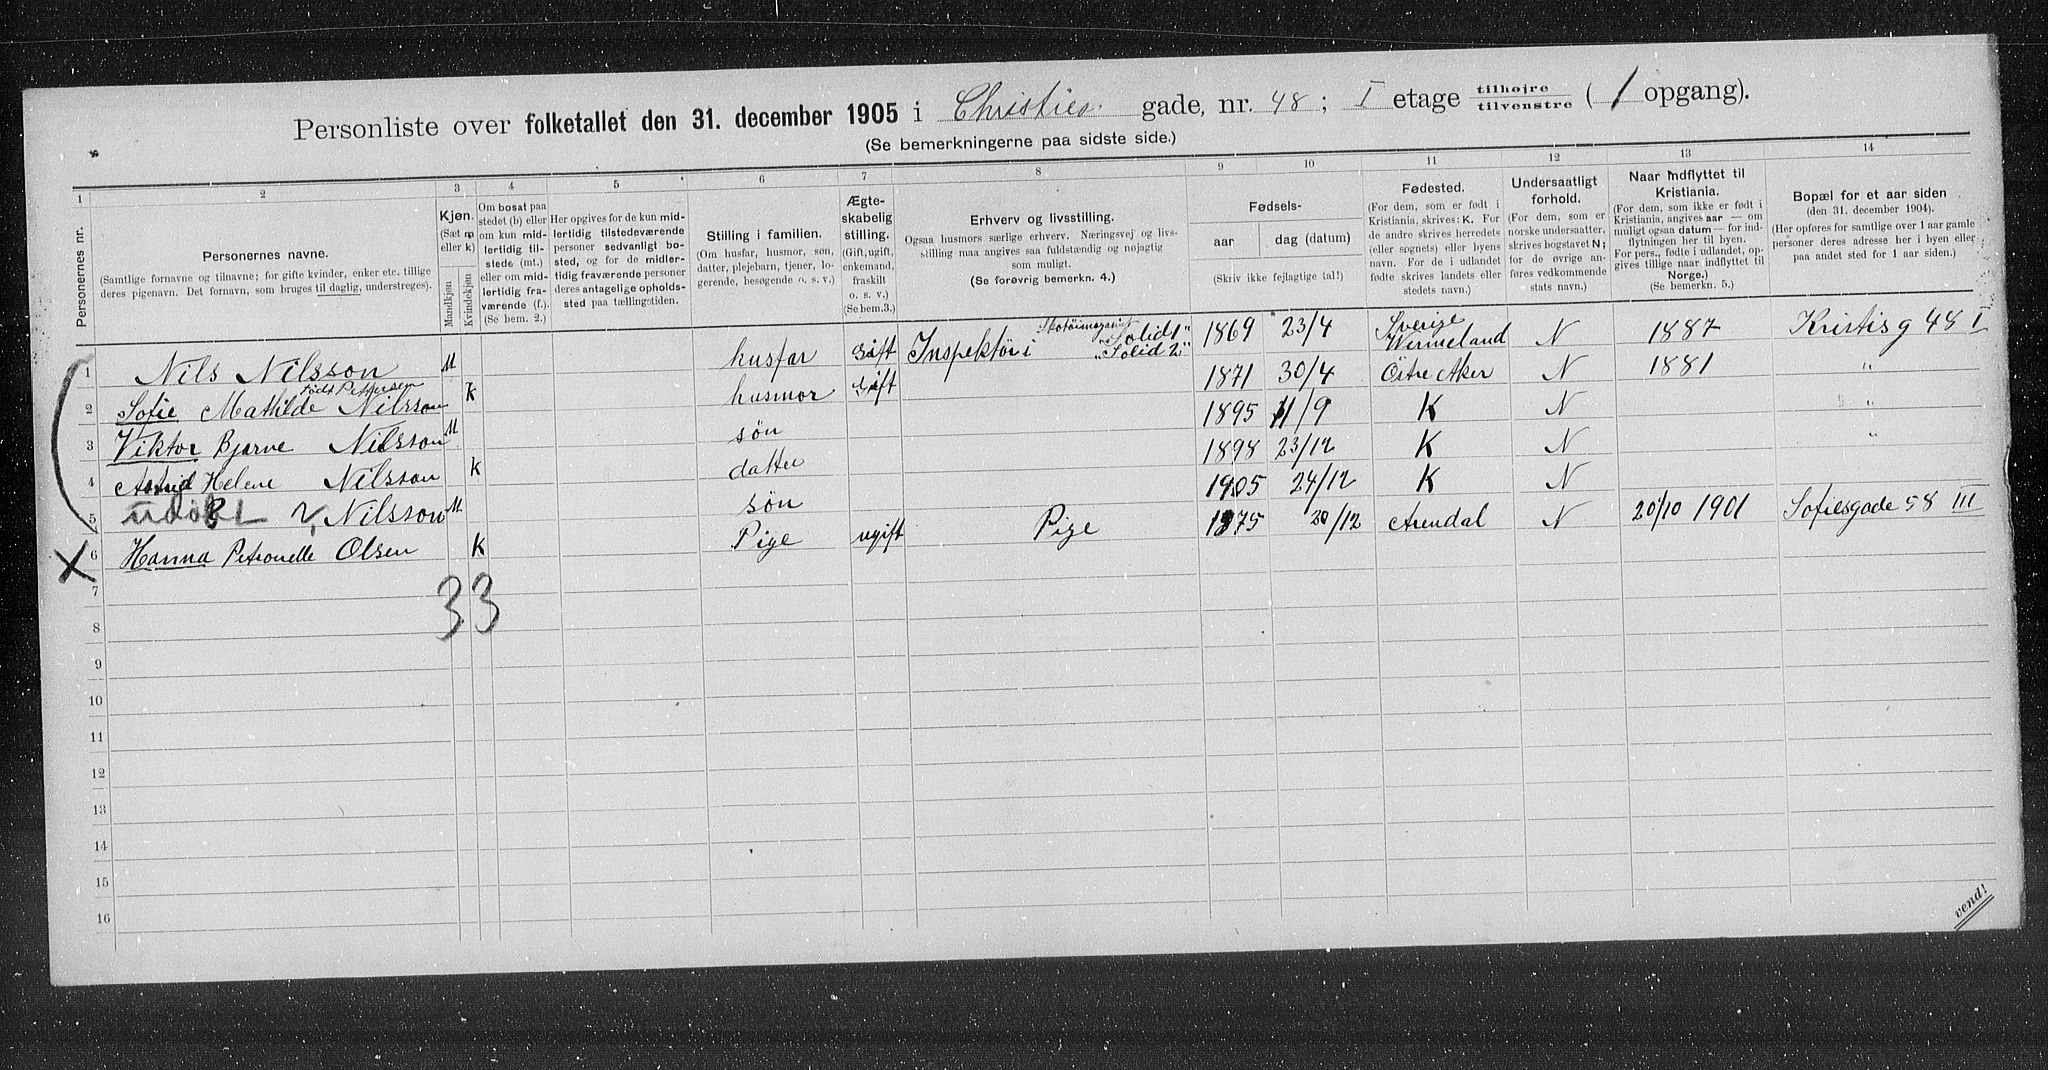 Personliste over folketallet den 31. december 1905 i Christies gade, nr. 48; I etage tilhøjre tilvenstre ( 1 opgang).
(Se bemerkningerne paa sidste side.)
1 2 3 4 5 6 7 8 9 10 11 12 13 14
Personernes nr.
Personernes navne.
(Samtlige fornavne og tilnavne; for gifte kvinder, enker etc. tillige
deres pigenavn. Det fornavn, som bruges til daglig, understreges).
Kjøn.
(Sæt m
eller k)
Mandkjøn
Kvindekjøn
Om bosat paa
stedet (b) eller
om kun mid-
lertidig til-
stede (mt.)
eller om mid-
lertidig fra-
værende (f.).
(Se bem. 2.)
Her opgives for de kun mid-
lertidig tilstedeværende
personer sedvanlig bo-
sted, og for de midler-
tidig fraværende personer
deres antagelige opholds-
sted paa tællingstiden.
Stilling i familien.
(Om husfar, husmor, søn,
datter, plejebarn, tjener, lo-
gerende, besøgende o. s. v.)
Ægte-
skabelig
stilling.
(Gift, ugift,
enkemand,
fraskilt
o. s. v.)
(Se bem.3.)
Erhverv og livsstilling.
Ogsaa husmors særlige erhverv. Næringsvej og livs-
stilling maa angives saa fuldstændig og nøjagtig
som muligt.
(Se forøvrig bemerkn. 4.)
Fødsels-
aar
dag (datum)
(Skriv ikke fejlagtige tal!)
Fødested.
(For dem, som er født i
Kristiania, skrives: K. For
de andre skrives herredets
(eller sognets) eller byens
navn. For de i udlandet
fødte skrives landets eller
stedets navn.)
Undersaatligt
forhold.
(For dem, som er
norske undersaatter,
skrives bogstavet N;
for de øvrige an-
føres vedkommende
stats navn.)
Naar indflyttet til
Kristiania.
(For dem, som ikke er født i
Kristiania, angives aar — om
muligt ogsaa datum — for ind-
flytningen her til byen.
For pers., fødte i udlandet, op-
gives tillige naar indflyttet til
Norge.)
(Se bemerkn. 5.)
Bopæl for et aar siden
(den 31. december 1904).
(Her opføres for samtlige over 1 aar gamle
personer deres adresse her i byen eller
paa andet sted for 1 aar siden.)
1 Nils Nilsson M husfar Gift Inspektør i Skotøimagasinet "Solid 1" "Solid 2" 1869 23/4 Sverige Wermeland N 1887 Kristis g 48 I
født Pettersen
2 Sofie Mathilde Nilsson K husmor Gift 1871 30/4 Östre Aker N 1881 "
3 Viktor Bjarne Nilsson M søn 1895 11/9 K N "
4 Astrid Helene Nilsson K datter 1898 23/12 K N "
5 udøbt Nilsson M søn 1905 24/12 K N
6 Hanna Petronelle Olsen K Pige ugift Pige 1875 20/12 Arendal N 20/10 1901 Sofiesgade 58 III
X
33
7
8
9
10
11
12
13
14
15
16
vend!